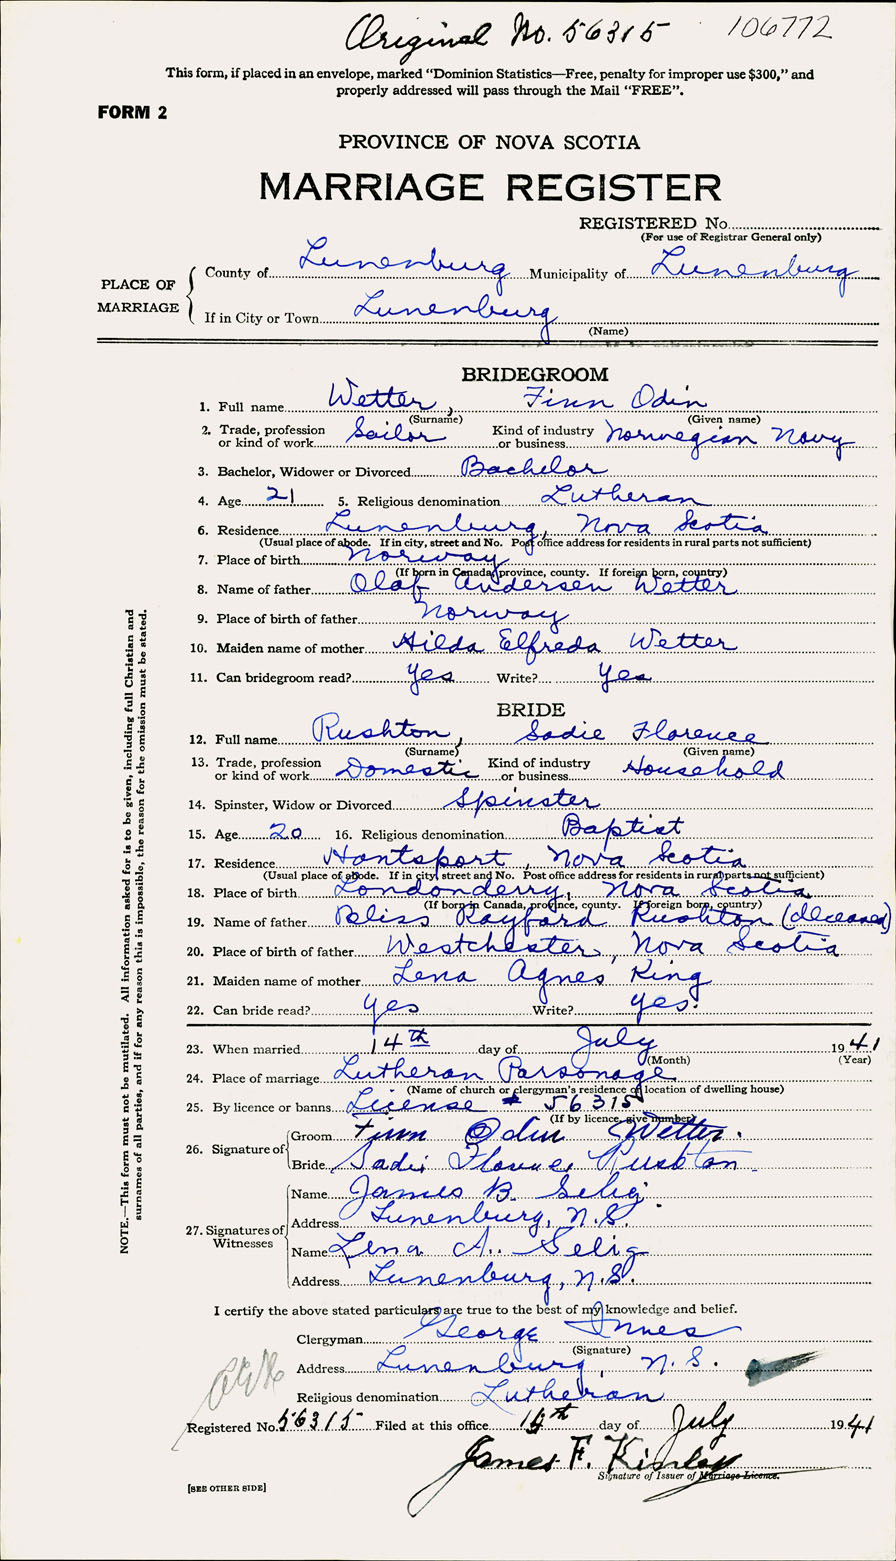 Original No. 56315 106772
This form, if placed in an envelope, marked “Dominion Statistics—Free, penalty for improper use $300,” and
properly addressed will pass through the Mail “FREE”.
FORM 2
PROVINCE OF NOVA SCOTIA
MARRIAGE REGISTER
REGISTERED No.
(For use of Registrar General only)
PLACE OF MARRIAGE
County of Lunenburg Municipality of Lunenburg
If in City or Town Lunenburg
(Name)
BRIDEGROOM
1. Full name Wetter, Finn Odin
(Surname) (Given name)
2. Trade, profession or kind of work Sailor Kind of industry or business Norwegian Navy
3. Bachelor, Widower or Divorced Bachelor
4. Age 21 5. Religious denomination Lutheran
6. Residence Lunenburg, Nova Scotia
(Usual place of abode. If in city, street and No. Post office address for residents in rural parts not sufficient)
7. Place of birth Norway
(If born in Canada, province, county. If foreign born, country)
8. Name of father Olaf Andersen Wetter
9. Place of birth of father Norway
10. Maiden name of mother Hilda Elfreda Wetter
11. Can bridegroom read? Yes Write? Yes
BRIDE
12. Full name Rushton, Sadie Florence
(Surname) (Given name)
13. Trade, profession or kind of work Domestic Kind of industry or business Household
14. Spinster, Widow or Divorced Spinster
15. Age 20 16. Religious denomination Baptist
17. Residence Hantsport, Nova Scotia
(Usual place of abode. If in city, street and No. Post office address for residents in rural parts not sufficient)
18. Place of birth Londonderry, Nova Scotia
(If born in Canada, province, county. If foreign born, country)
19. Name of father Bliss Rayford Rushton (deceased)
20. Place of birth of father Westchester, Nova Scotia
21. Maiden name of mother Lena Agnes King
22. Can bride read? Yes Write? Yes.
23. When married 14th day of July 1941
(Month) (Year)
24. Place of marriage Lutheran Parsonage
(Name of church or clergyman's residence or location of dwelling house)
25. By licence or banns License # 56315
(If by licence, give number)
26. Signature of
Groom Finn Odin Wetter.
Bride Sadie Florence Rushton
27. Signatures of Witnesses
Name James B. Selig
Address Lunenburg, N.S.
Name Lena A. Selig
Address Lunenburg, N.S.
I certify the above stated particulars are true to the best of my knowledge and belief.
Clergyman George Innes
(Signature)
Address Lunenburg, N.S.
Religious denomination Lutheran
Registered No. 56315 Filed at this office day of July 1941
James F. Kinley
Signature of Issuer of Marriage Licence.
[SEE OTHER SIDE]
NOTE.—This form must not be mutilated. All information asked for is to be given, including full Christian and
surnames of all parties, and if for any reason this is impossible, the reason for the omission must be stated.